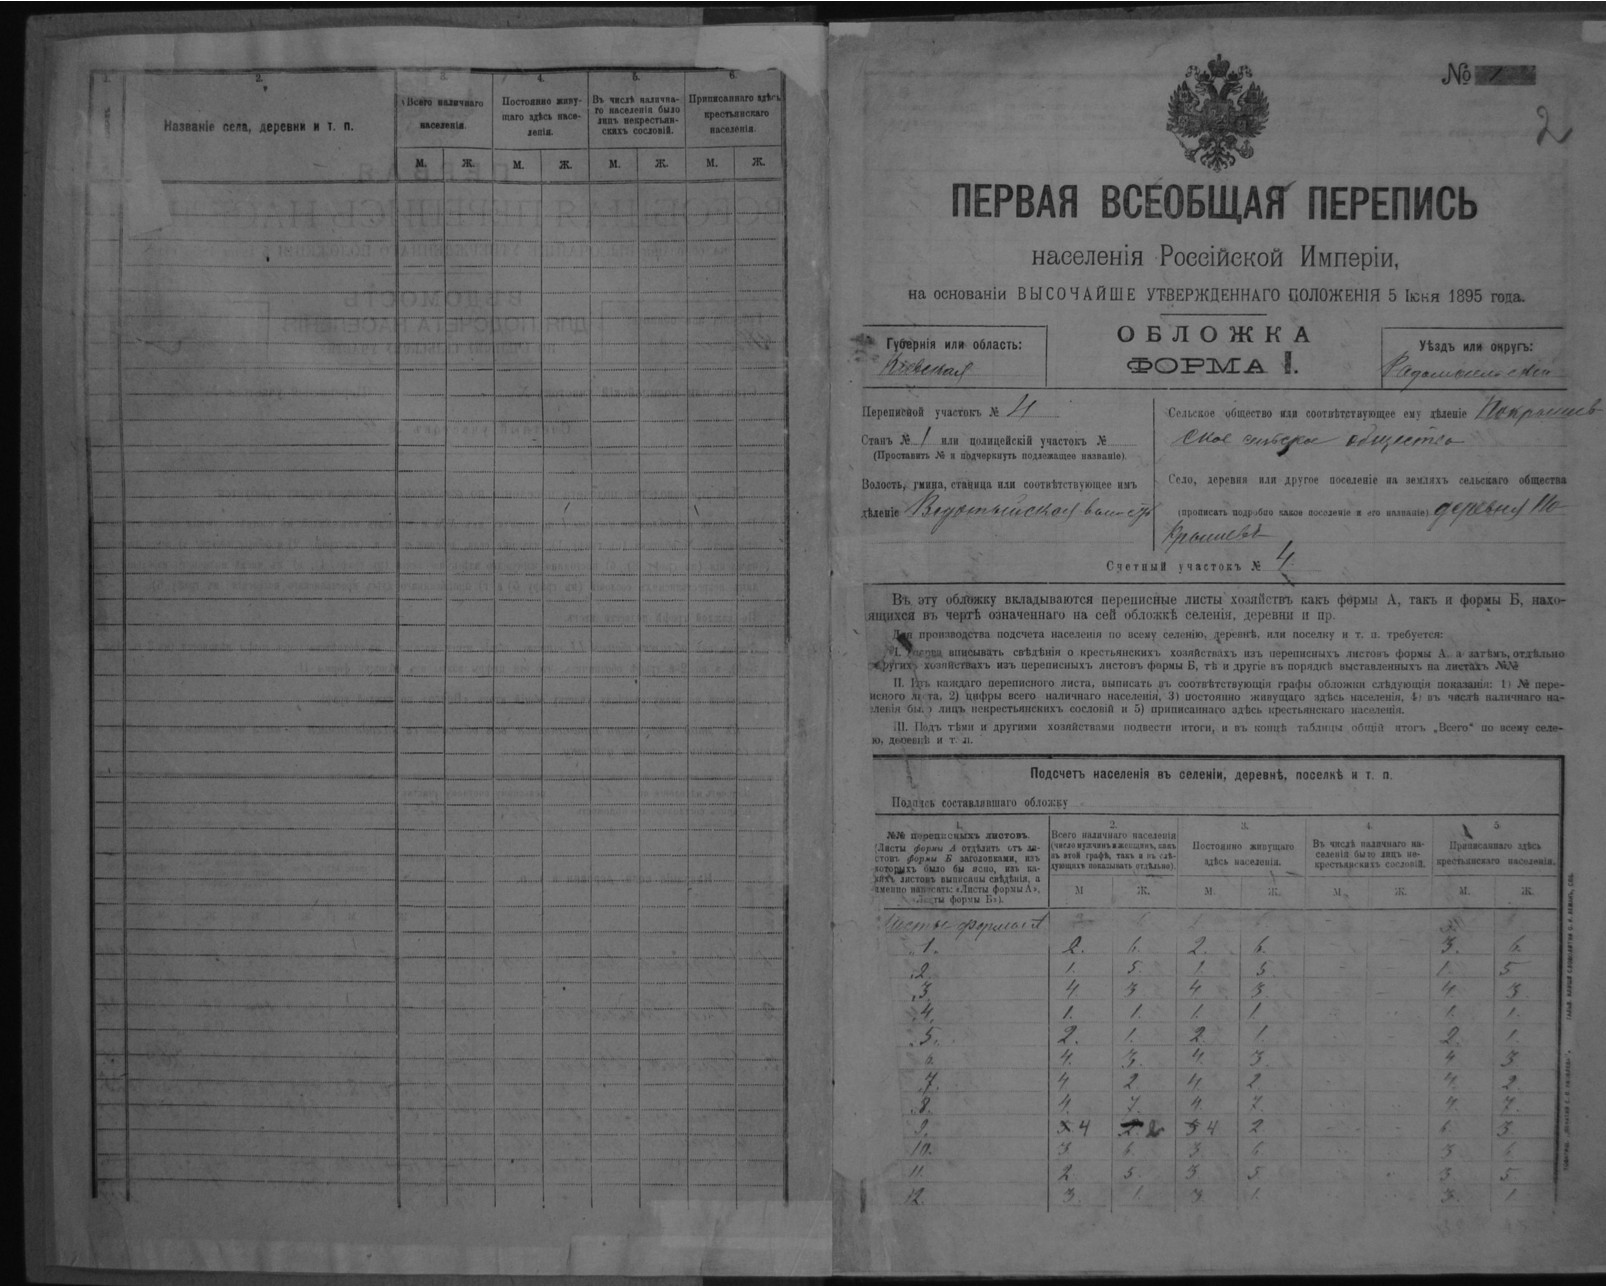 1.
2.
3.
4.
5.
6.
Названіе села, деревни и т. п.
Всего наличнаго
населенія.
Постоянно живу-
щаго здѣсь насе-
ленія.
Въ числѣ налична-
го населенія было
лицъ некрестьян-
скихъ сословій.
Приписаннаго здѣсь
крестьянскаго
населенія.
М. Ж. М. Ж. М. Ж. М. Ж.
№ 1
2
ПЕРВАЯ ВСЕОБЩАЯ ПЕРЕПИСЬ
населенія Россійской Имперіи,
на основаніи ВЫСОЧАЙШЕ УТВЕРЖДЕННАГО ПОЛОЖЕНІЯ 5 Іюня 1895 года.
Губернія или область:
Кіевская
ОБЛОЖКА
ФОРМА 1.
Уѣздъ или округъ:
Радомысльскій
Переписной участокъ № 4
Станъ № 1 или полицейскій участокъ №
(Проставить № и подчеркнуть подлежащее названіе).
Волость, гмина, станица или соотвѣтствующее имъ
дѣленіе Водотыйская волость
Сельское общество или соотвѣтствующее ему дѣленіе Покрышев
ское сельское общество
Село, деревня или другое поселеніе на земляхъ сельскаго общества
(прописать подробно какое поселеніе и его названіе) деревня По
крышевъ
Счетный участокъ № 4
Въ эту обложку вкладываются переписные листы хозяйствъ какъ формы А, такъ и формы Б, нахо-
дящихся въ чертѣ означеннаго на сей обложкѣ селенія, деревни и пр.
Для производства подсчета населенія по всему селенію, деревнѣ, или поселку и т. п. требуется:
I. вписывать свѣдѣнія о крестьянскихъ хозяйствахъ изъ переписныхъ листовъ формы А. а затѣмъ, отдѣльно
о другихъ хозяйствахъ изъ переписныхъ листовъ формы Б, тѣ и другіе въ порядкѣ выставленныхъ на листахъ №№
II. Изъ каждаго переписного листа, выписать въ соотвѣтствующія графы обложки слѣдующія показанія: 1) № пере-
писного листа, 2) цифры всего наличнаго населенія, 3) постоянно живущаго здѣсь населенія, 4) въ числѣ наличнаго на-
селенія было лицъ некрестьянскихъ сословій и 5) приписаннаго здѣсь крестьянскаго населенія.
III. Подъ тѣми и другими хозяйствами подвести итоги, и въ концѣ таблицы общій итогъ „Всего“ по всему селе-
нію, деревнѣ и т. п.
Подсчетъ населенія въ селеніи, деревнѣ, поселкѣ и т. п.
Подпись составлявшаго обложку
1.
№№ переписныхъ листовъ.
(Листы формы А отдѣлить отъ ли-
стовъ формы Б заголовками, изъ
которыхъ было бы ясно, изъ ка-
кихъ листовъ выписаны свѣдѣнія, а
именно написать: «Листы формы А»,
«Листы формы Б»).
2.
Всего наличнаго населенія
(число мужчинъ и женщинъ, какъ
въ этой графѣ, такъ и въ слѣ-
дующихъ показывать отдѣльно).
3.
Постоянно живущаго
здѣсь населенія.
4.
Въ числѣ наличнаго на-
селенія было лицъ не-
крестьянскихъ сословій.
5.
Приписаннаго здѣсь
крестьянскаго населенія.
М Ж. М. Ж. М. Ж. М. Ж.
Листы формы А
1. 2. 6. 2. 6 3. 6.
2. 1. 5. 1. 5 1. 5
3. 4. 3 4 3 4. 3
4. 1. 1. 1. 1 1. 1.
5. 2. 1. 2. 1. 2. 1.
6. 4. 3. 4. 3. 4 3
7. 4 2 4 2 4. 2.
8. 4. 7. 4. 7. 4. 7.
9. 4 2 4 2 6. 3
10. 3 6. 3 6 3 6
11. 2 5. 3 5 3 5.
12. 3. 1 3 1. 3. 1